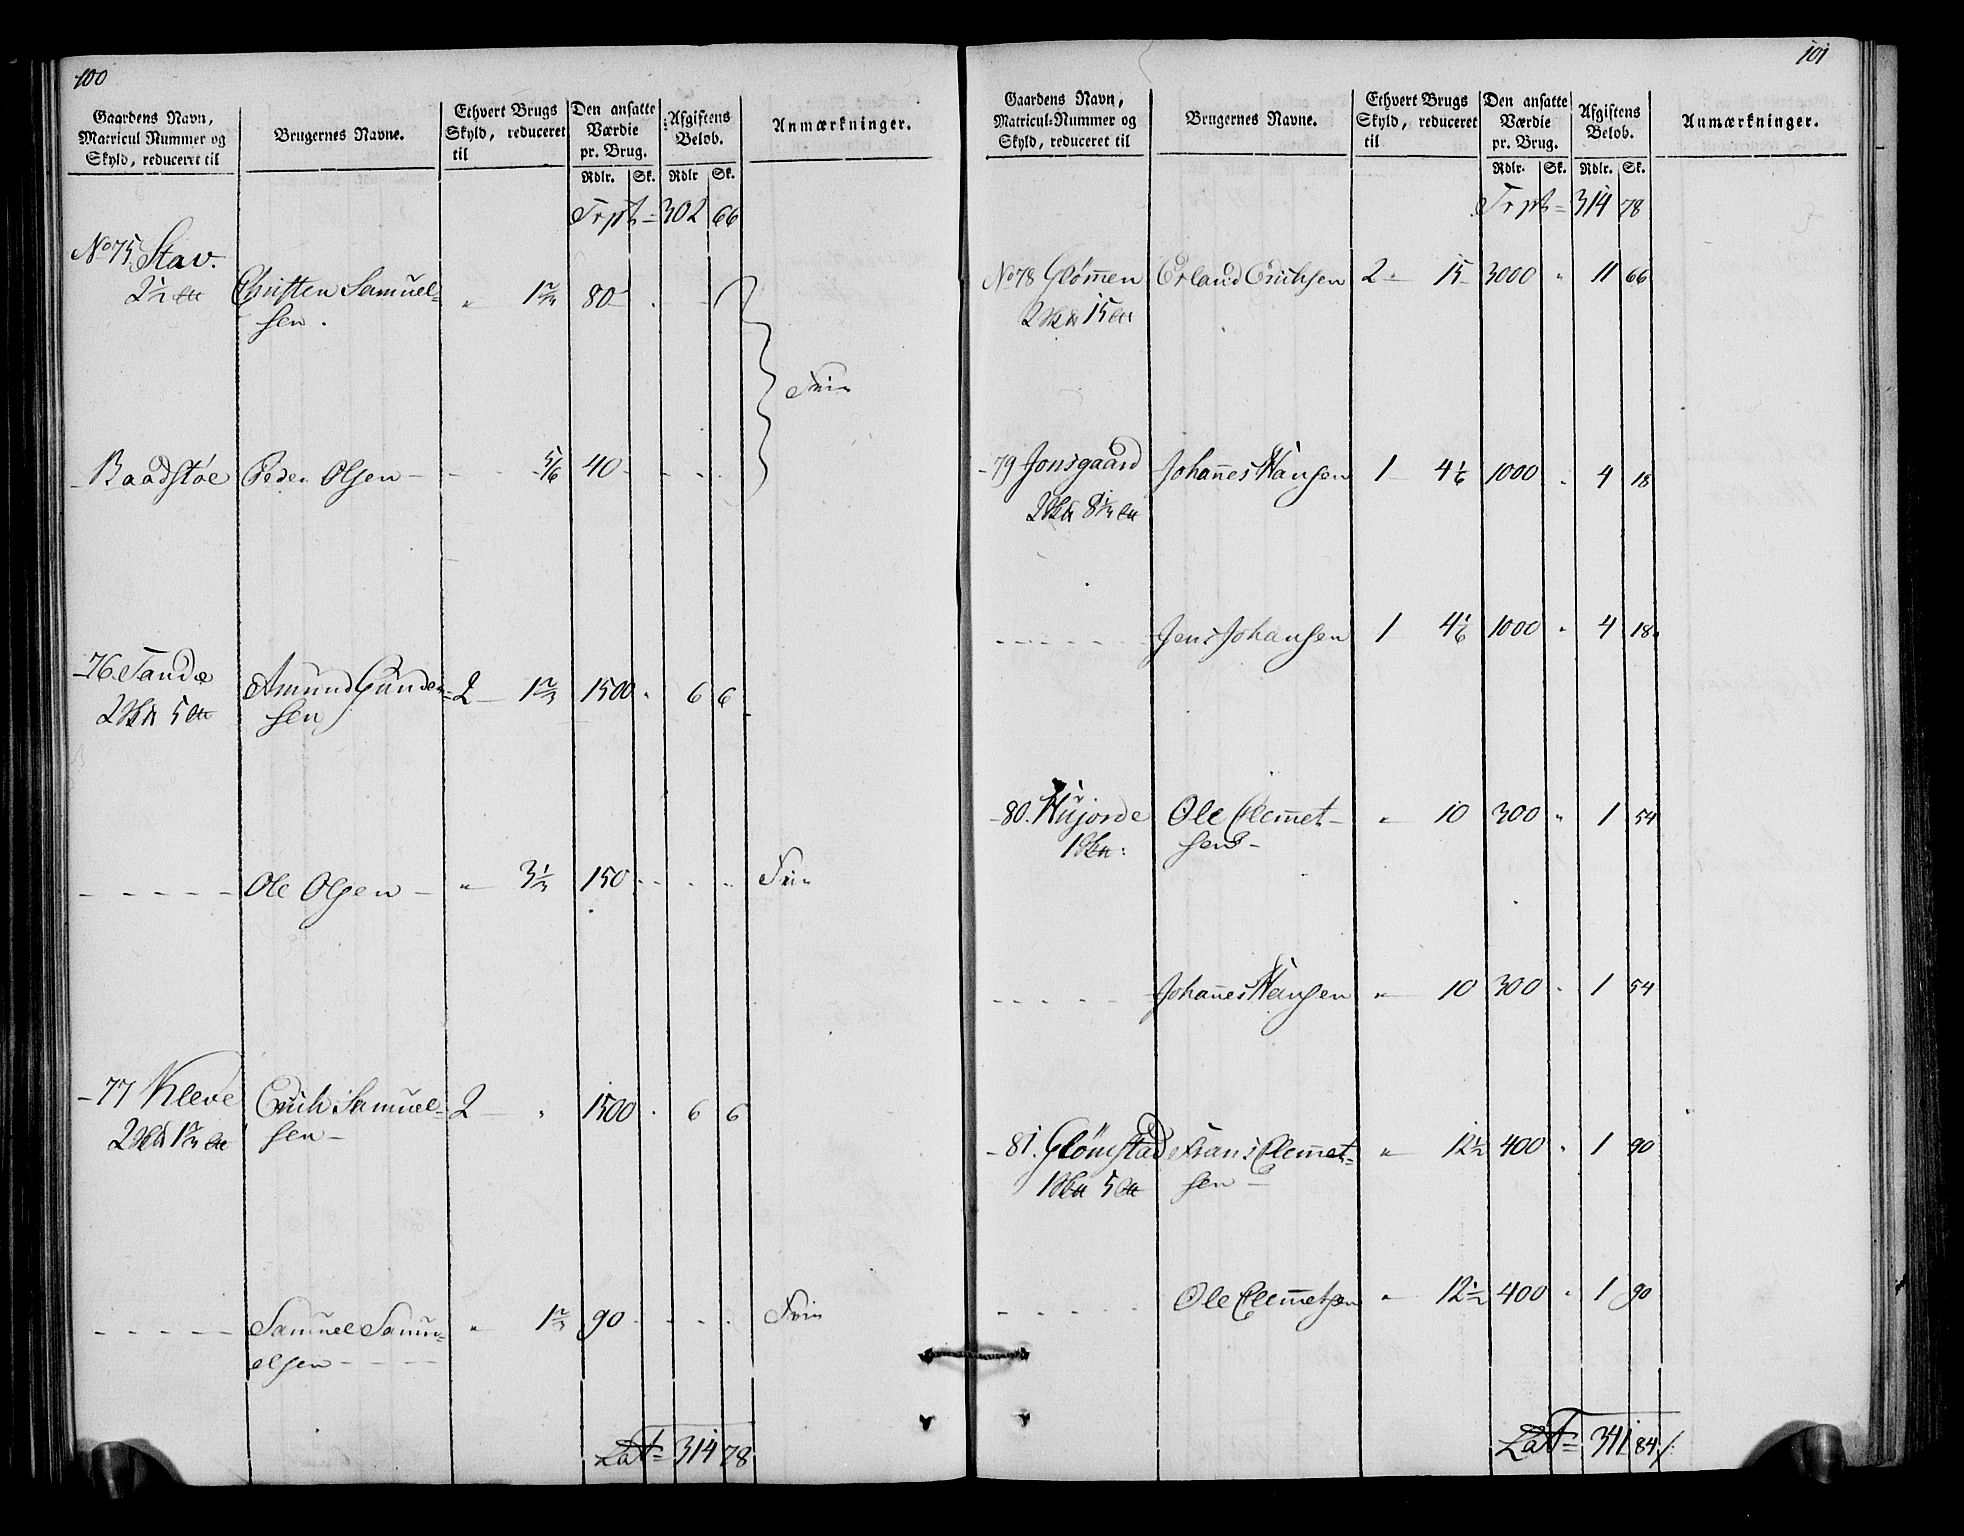 100
Gaardens Navn,
Matricul Nummer og
Skyld, reduceret til
Brugernes Navne.
Ethvert Brugs
Skyld, reduceret
til
Den ansatte
Værdie
pr. Brug.
Rdlr. Sk.
Afgiftens
Belob.
Rdlr Sk.
Anmærkninger.
Trpt = 302 66
No 75 Stav.
2½
Christen Samuel= " 1⅔ 80
sen.
Frie
Baadstøe Peder Olsen 5/6 40
76 Tande Amund Gunder= 2 1⅔ 1500 " 6 6
2 5 sen
Ole Olsen " 3⅓ 150 Frie
77 Kleve Erich Samuel= 2 " 1500 " 6 6
2 1⅔ sen
Samuel Samu= " 1⅔ 90 Frie
elsen
Lat = 314 78
101
Gaardens Navn,
Matricul-Nummer og
Skyld, reduceret til
Brugernes Navne.
Ethvert Brugs
Skyld, reduceret
til
Den ansatte
Værdie
pr. Brug.
Rdlr. Sk.
Afgiftens
Belob.
Rdlr. Sk.
Anmærkninger.
Trpt = 314 78
No 78 Glom̄en Erland Erichsen 2 15 3000 " 11 66
2 15
79 Jonsgaard Johan̄es Hansen 1 4⅙ 1000 " 4 18
2 8⅓
Jens Johansen 1 4⅙ 1000 " 4 18
80. Hujorde Ole Clem̄et " 10 300 " 1 54
1 sen
Johan̄es Hansen " 10 300 " 1 54
81. Glomstad Frans Clem̄et= " 12½ 400 " 1 90
1 5 sen
Ole Clem̄etsen " 12½ 400 " 1 90
Lat = 341 84